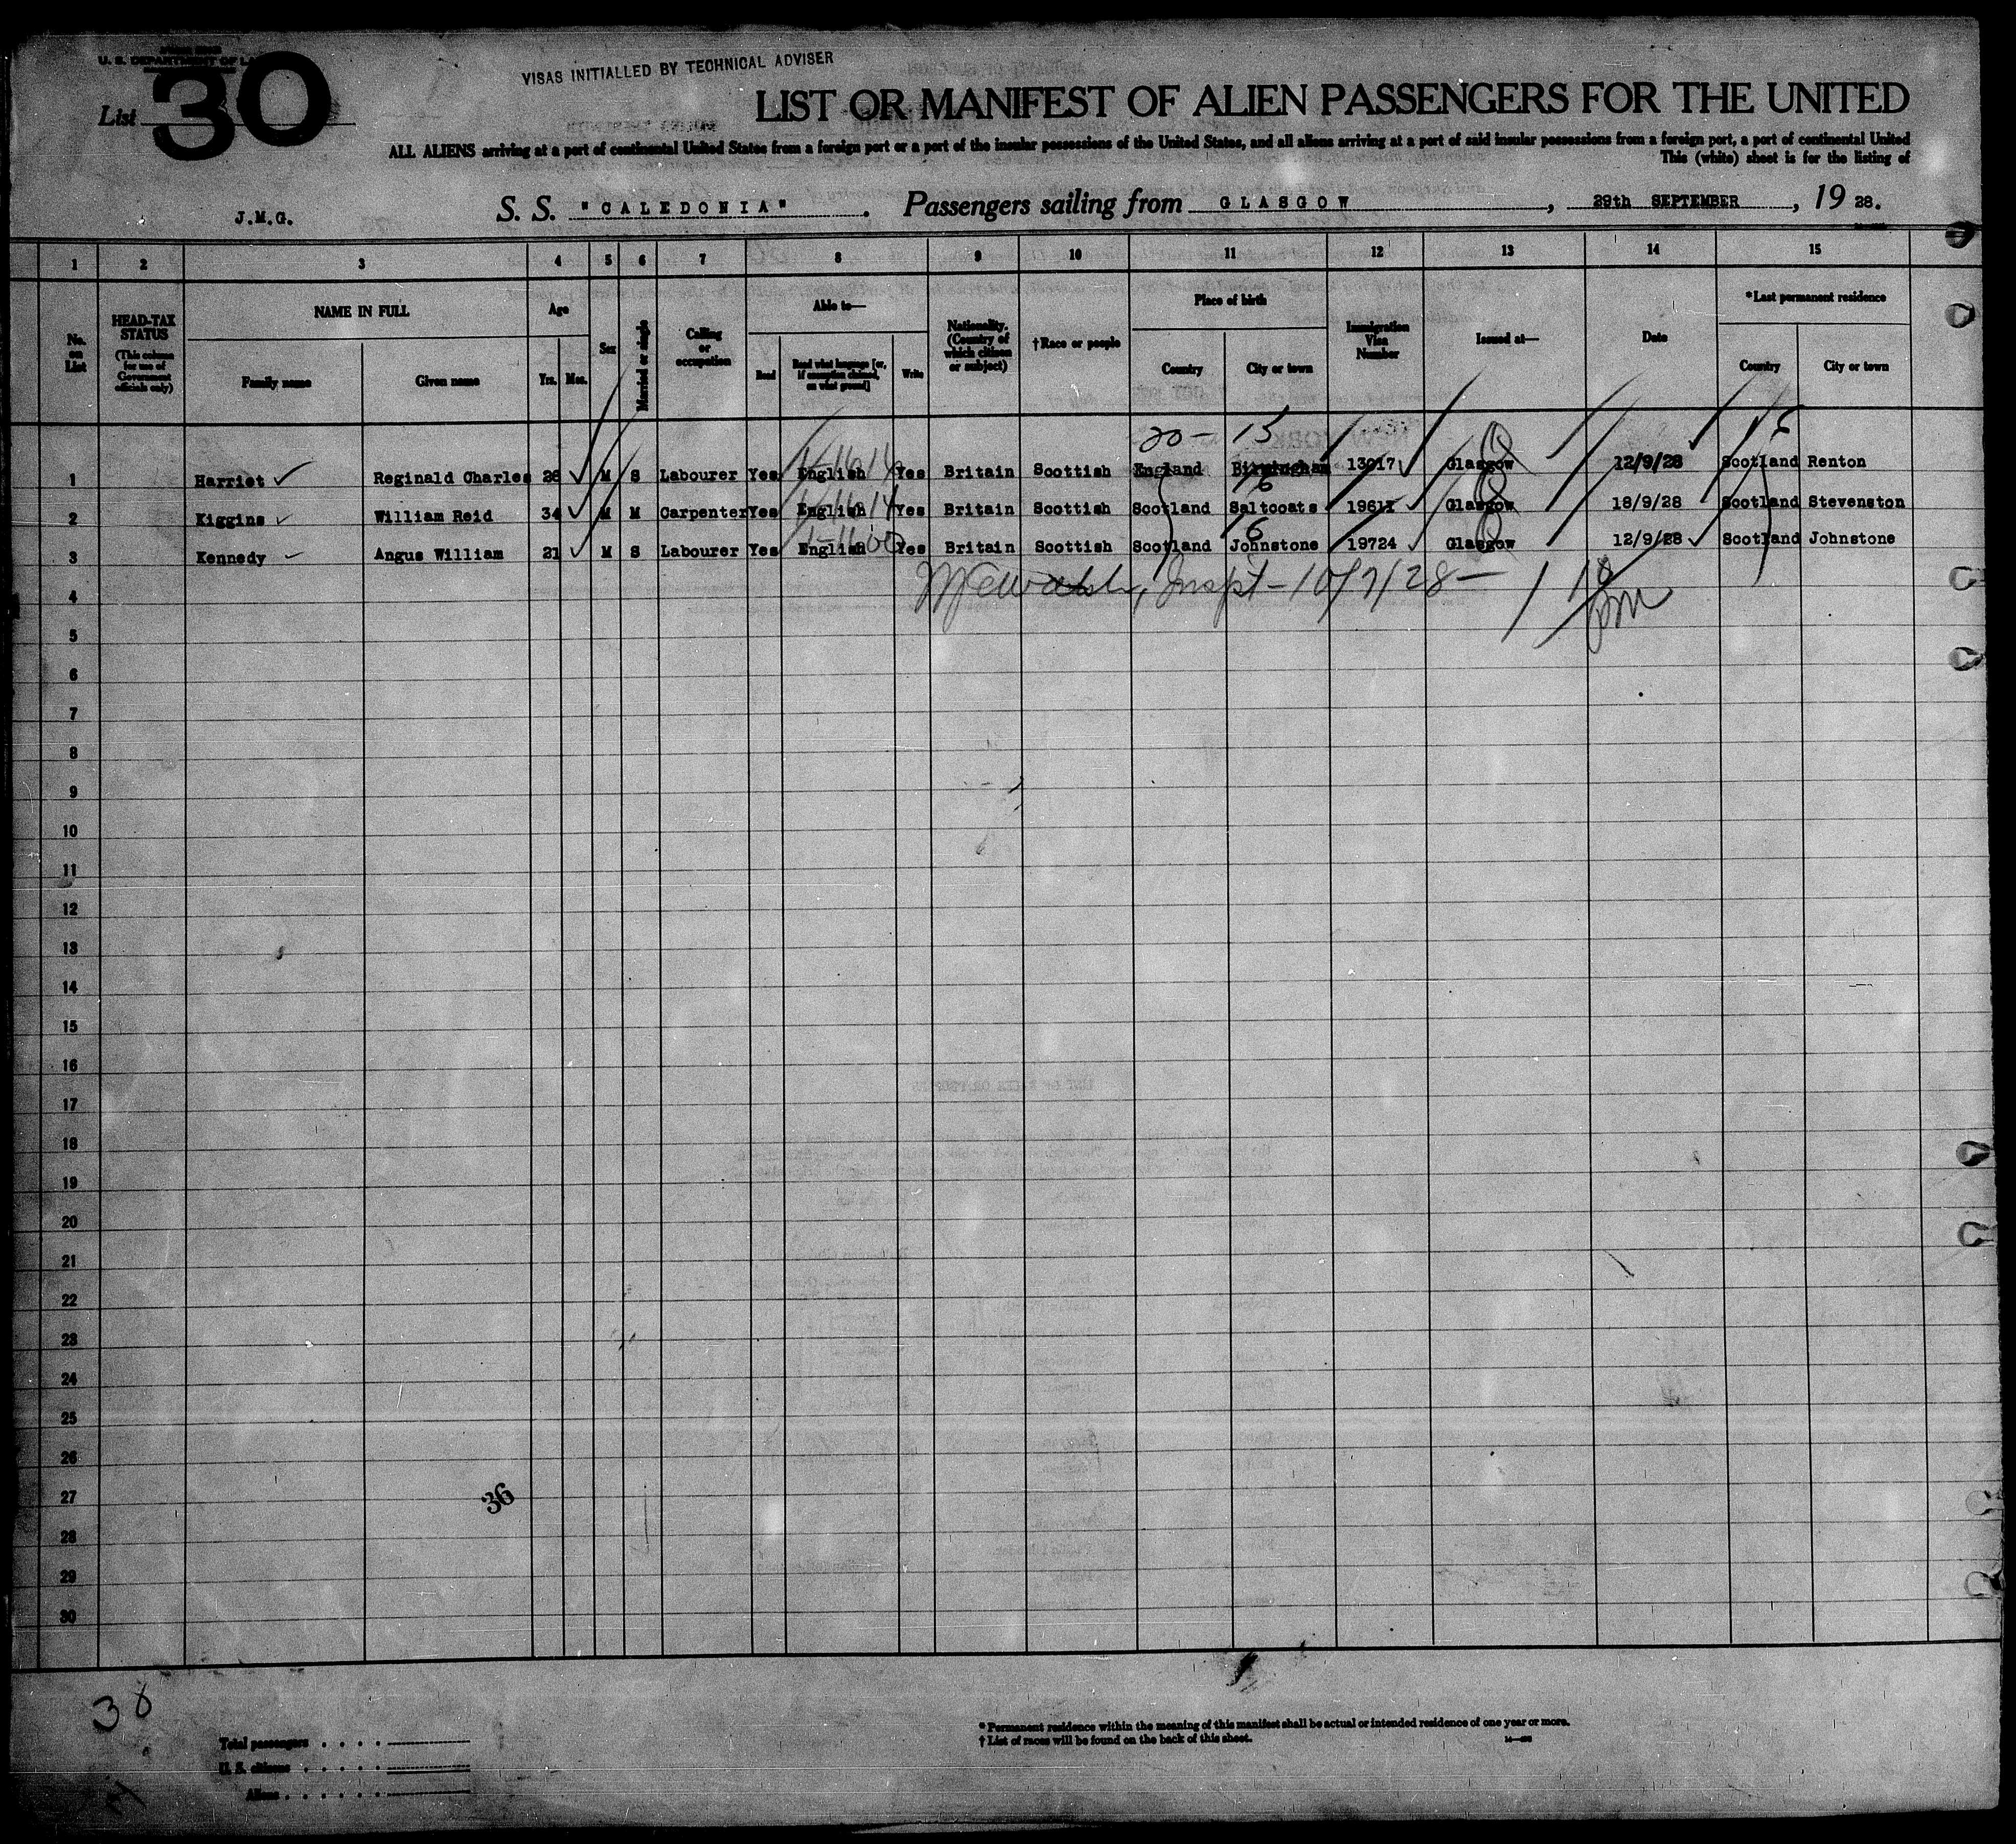 U. S. DEPARTMENT OF LA
List 30
VISAS INITIALLED BY TECHNICAL ADVISER
LIST OR MANIFEST OF ALIEN PASSENGERS FOR THE UNITED
ALL ALIENS arriving at a port of continental United States from a foreign port or a port of the insular possessions of the United States, and all aliens arriving at a port of said insular possessions from a foreign port, a port of continental United
This (white) sheet is for the listing of
J.M.G. S. S. "CALEDONIA". Passengers sailing from GLASGOW, 29th SEPTEMBER, 19 28.
1 2 3 4 5 6 7 8 9 10 11 12 13 14 15
No. on List
HEAD-TAX STATUS
(This column for use of Government officials only)
NAME IN FULL
Family name Given name
Age
Yrs. Mos.
Sex
Married or single
Calling or occupation
Able to—
Read Read what language [or, if exemption claimed, on what ground] Write
Nationality. (Country of which citizen or subject)
†Race or people
Place of birth
Country City or town
Immigration Visa Number
Issued at—
Date
*Last permanent residence
Country City or town
20 - 15
1 Harriet Reginald Charles 26 M S Labourer Yes English Yes Britain Scottish England Birmingham 13017 Glasgow 12/9/28 Scotland Renton
2 Kiggins William Reid 34 M M Carpenter Yes English Yes Britain Scottish Scotland Saltcoats Glasgow 18/9/28 Scotland Stevenston
3 Kennedy Angus William 21 M S Labourer Yes English Yes Britain Scottish Scotland Johnstone 19724 Glasgow 12/9/28 Scotland Johnstone
Inspt - 10/7/28 -
4
5
6
7
8
9
10
11
12
13
14
15
16
17
18
19
20
21
22
23
24
25
26
27
36
28
29
30
38
Total passengers
U. S. citizens
Aliens
* Permanent residence within the meaning of this manifest shall be actual or intended residence of one year or more.
† List of races will be found on the back of this sheet.